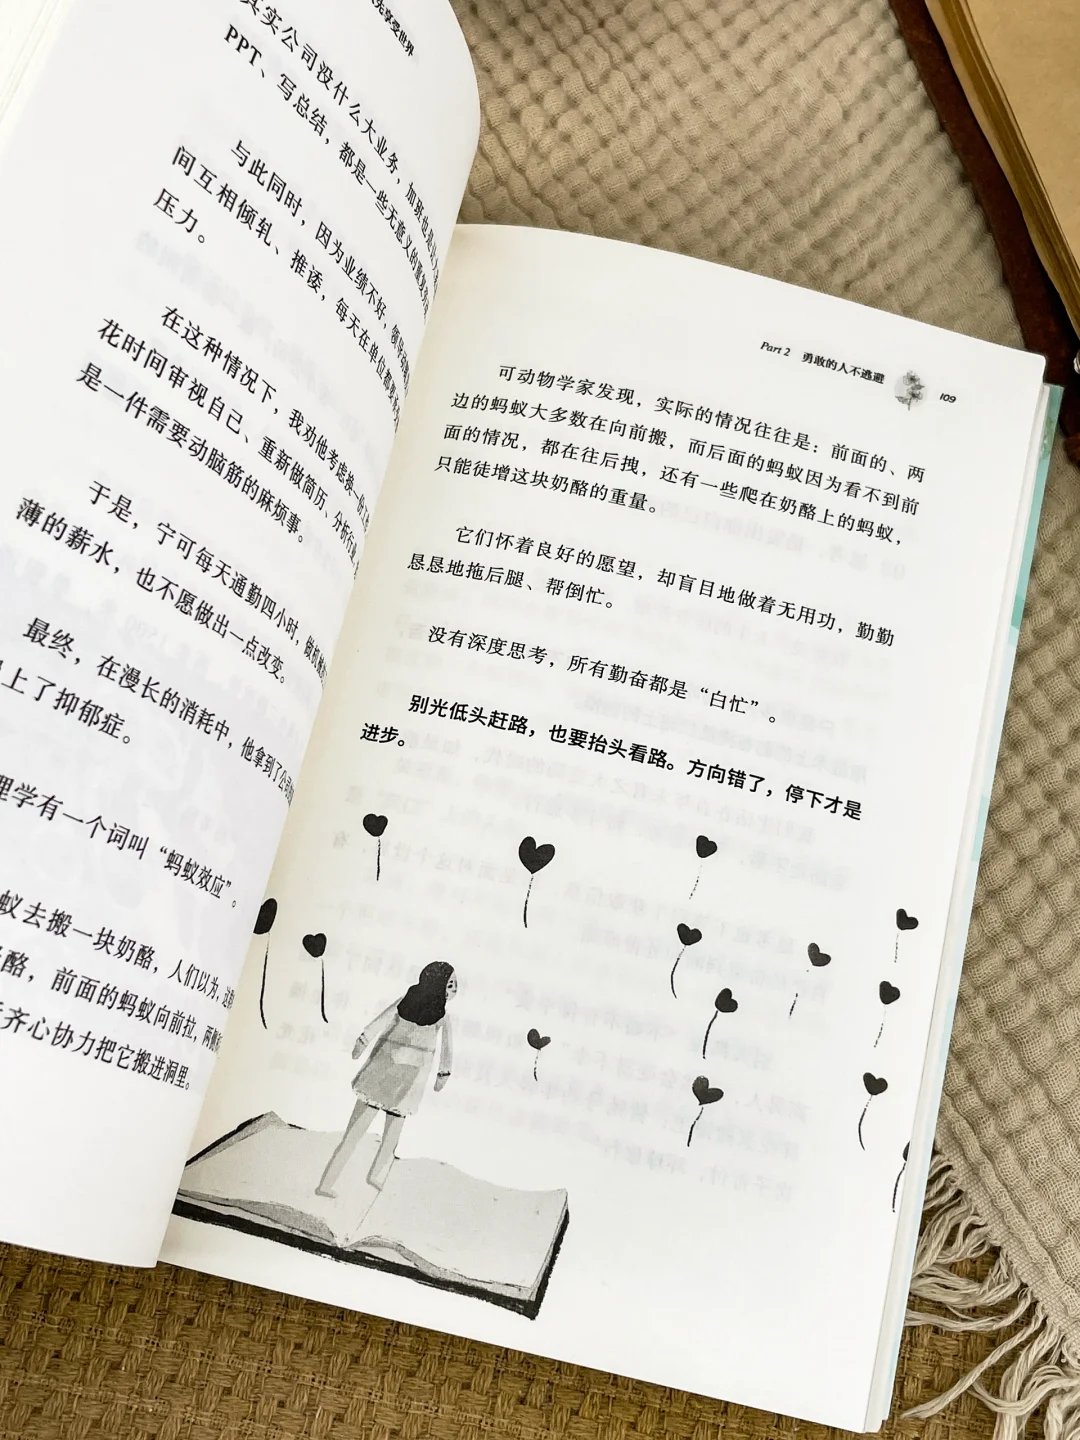 先享受世界
其实公司没什么大业务，加班也是
PPT、写总结，都是一些无意义的重复
与此同时，因为业绩不好，领导
间互相倾轧、推诿，每天在单位都要
压力。
在这种情况下，我劝他考虑换一份工
花时间审视自己、重新做简历、分析行业
是一件需要动脑筋的麻烦事。
于是，宁可每天通勤四小时，做机械
薄的薪水，也不愿做出一点改变。
最终，在漫长的消耗中，他拿到了公司
上了抑郁症。
理学有一个词叫“蚂蚁效应”。
蚁去搬一块奶酪，人们以为，这
酪，前面的蚂蚁向前拉，两侧
齐心协力把它搬进洞里。
Part 2 勇敢的人不逃避 109
可动物学家发现，实际的情况往往是：前面的、两
边的蚂蚁大多数在向前搬，而后面的蚂蚁因为看不到前
面的情况，都在往后拽，还有一些爬在奶酪上的蚂蚁，
只能徒增这块奶酪的重量。
它们怀着良好的愿望，却盲目地做着无用功，勤勤
恳恳地拖后腿、帮倒忙。
没有深度思考，所有勤奋都是“白忙”。
别光低头赶路，也要抬头看路。方向错了，停下才是
进步。